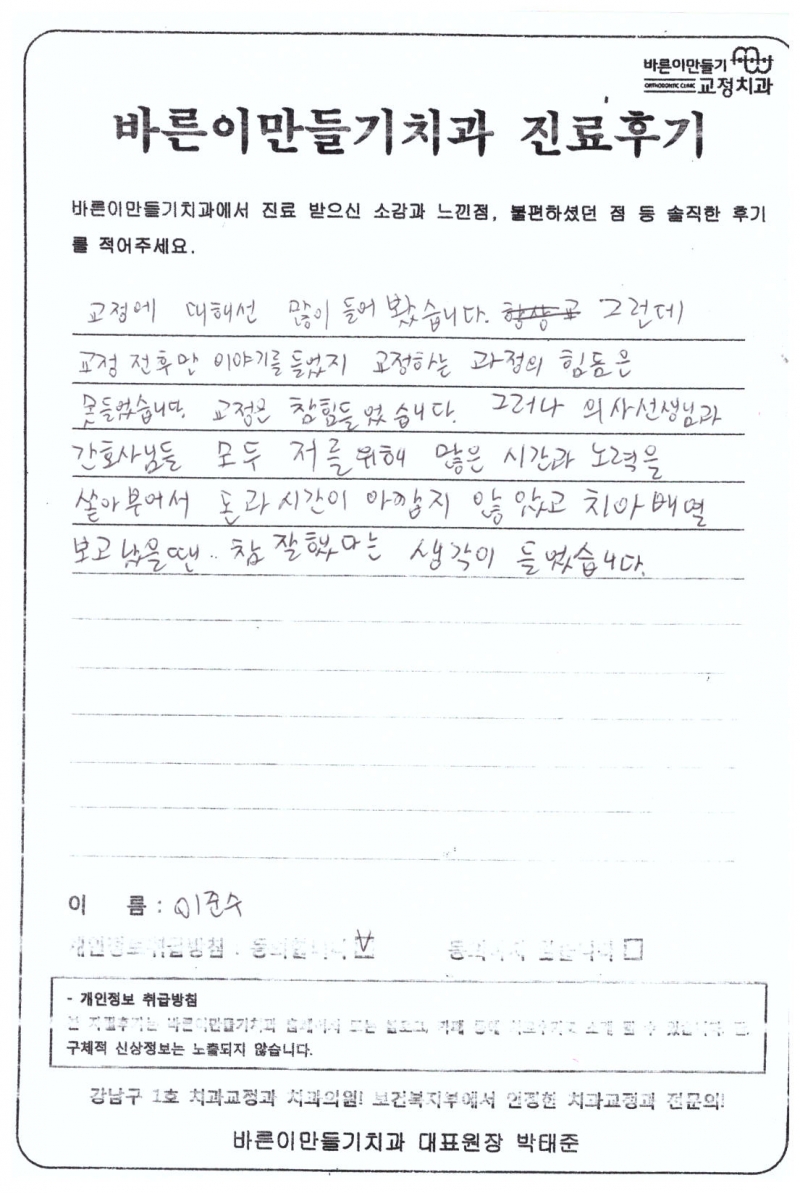 바른이만들기
ORTHODONTIC CLINIC 교정치과
바른이만들기치과 진료후기
바른이만들기치과에서 진료 받으신 소감과 느낀점, 불편하셨던 점 등 솔직한 후기
를 적어주세요.
교정에 대해선 많이 들어 봤습니다. 그런데
교정 전후만 이야기를 들었지 교정하는 과정의 힘듬은
못들었습니다. 교정은 참힘들었습니다. 그러나 의사선생님과
간호사님들 모두 저를 위해 많은 시간과 노력을
쏟아부어서 돈과 시간이 아깝지 않았고 치아배열
보고 났을땐.. 참 잘했다는 생각이 들었습니다.
이 름 : 이준수
개인정보취급방침 : 동의합니다 동의하지 않습니다
- 개인정보 취급방침
본 치료후기는 바른이만들기치과
구체적 신상정보는 노출되지 않습니다.
강남구 1호 치과교정과 치과의원! 보건복지부에서 인정한 치과교정과 전문의!
바른이만들기치과 대표원장 박태준